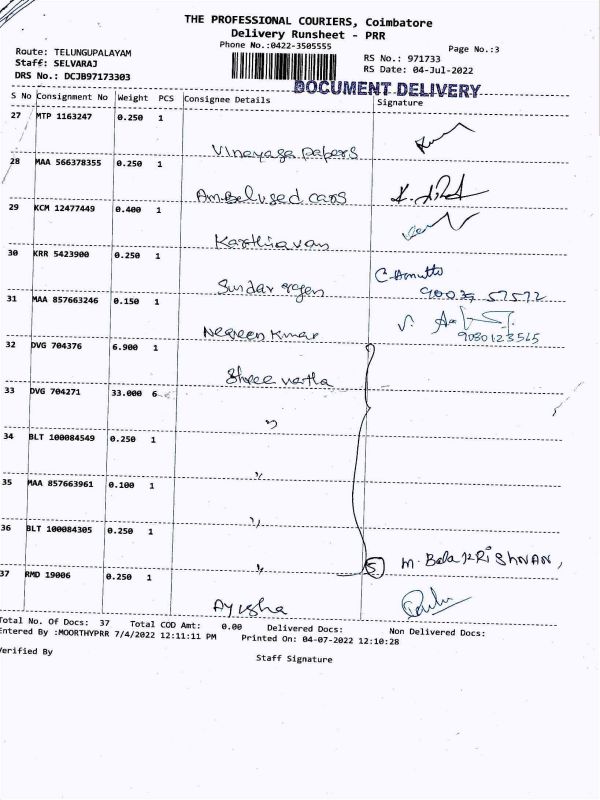 THE PROFESSIONAL COURIERS, Coimbatore
Delivery Runsheet - PRR
Phone No.:0422-3505555
Page No.:3
Route: TELUNGUPALAYAM
Staff: SELVARAJ
DRS No.: DCJB97173303
RS No.: 971733
RS Date: 04-Jul-2022
DOCUMENT DELIVERY
S No Consignment No Weight PCS Consignee Details Signature
27 MTP 1163247 0.250 1
Vinayaga papers
28 MAA 566378355 0.250 1
Am.Bel used cars
29 KCM 12477449 0.400 1
Karthiavan
30 KRR 5423900 0.250 1
Sundar
31 MAA 857663246 0.150 1
Kmar 9080123515
32 DVG 704376 6.900 1
Shree
33 DVG 704271 33.000 6
"
34 BLT 100084549 0.250 1
"
35 MAA 857663961 0.100 1
"
36 BLT 100084305 0.250 1
" 5 M. Bala KRiSHNAN,
37 RMD 19006 0.250 1
Ayisha
Total No. Of Docs: 37 Total COD Amt: 0.00 Delivered Docs: Non Delivered Docs:
Entered By :MOORTHYPRR 7/4/2022 12:11:11 PM Printed On: 04-07-2022 12:10:28
Verified By
Staff Signature